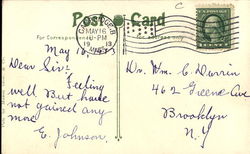 Post Card
For Correspondence
MAY 16
6-PM
1913
May 16, 1913
Dear Sir:-
Feeling
well But have
not gained any
more
E. Johnson.
Dr. Wm. C.
462 Greene Ave
Brooklyn
N.Y